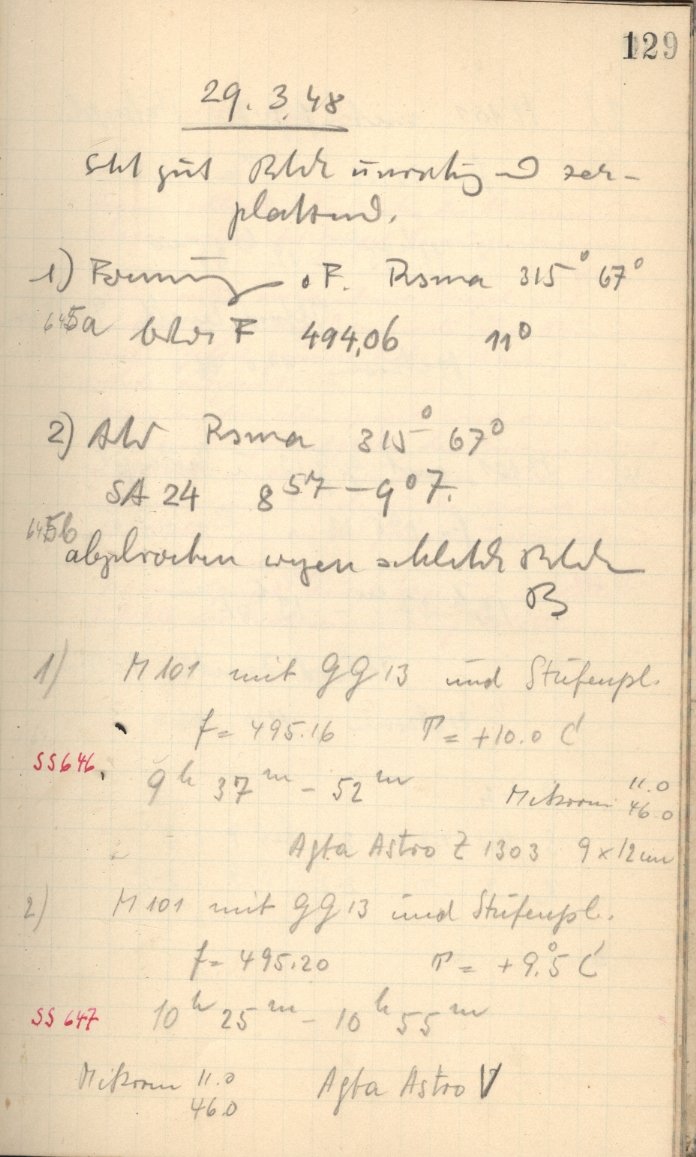 129
29.3.48
Seht gut Bilder unruhig und zer-
platzend.
1) F. Rsma 315° 67°
645a F 494,06 11°
2) Rsma 315° 67°
SA 24 8 57 – 9 07.
645b
abgebrochen wegen schlechter Bilder
B
1) M 101 mit GG 13 und Stufenpl.
f = 495.16 T = +10.0 C
SS646. 9h 37m – 52m Mikrom 11.0
46.0
Agfa Astro Z 1303 9 x 12 cm
2) M 101 mit GG 13 und Stufenpl.
f = 495.20 T = +9.°5 C
SS 647 10h 25m – 10h 55m
Mikrom 11.0 Agfa Astro V
46.0